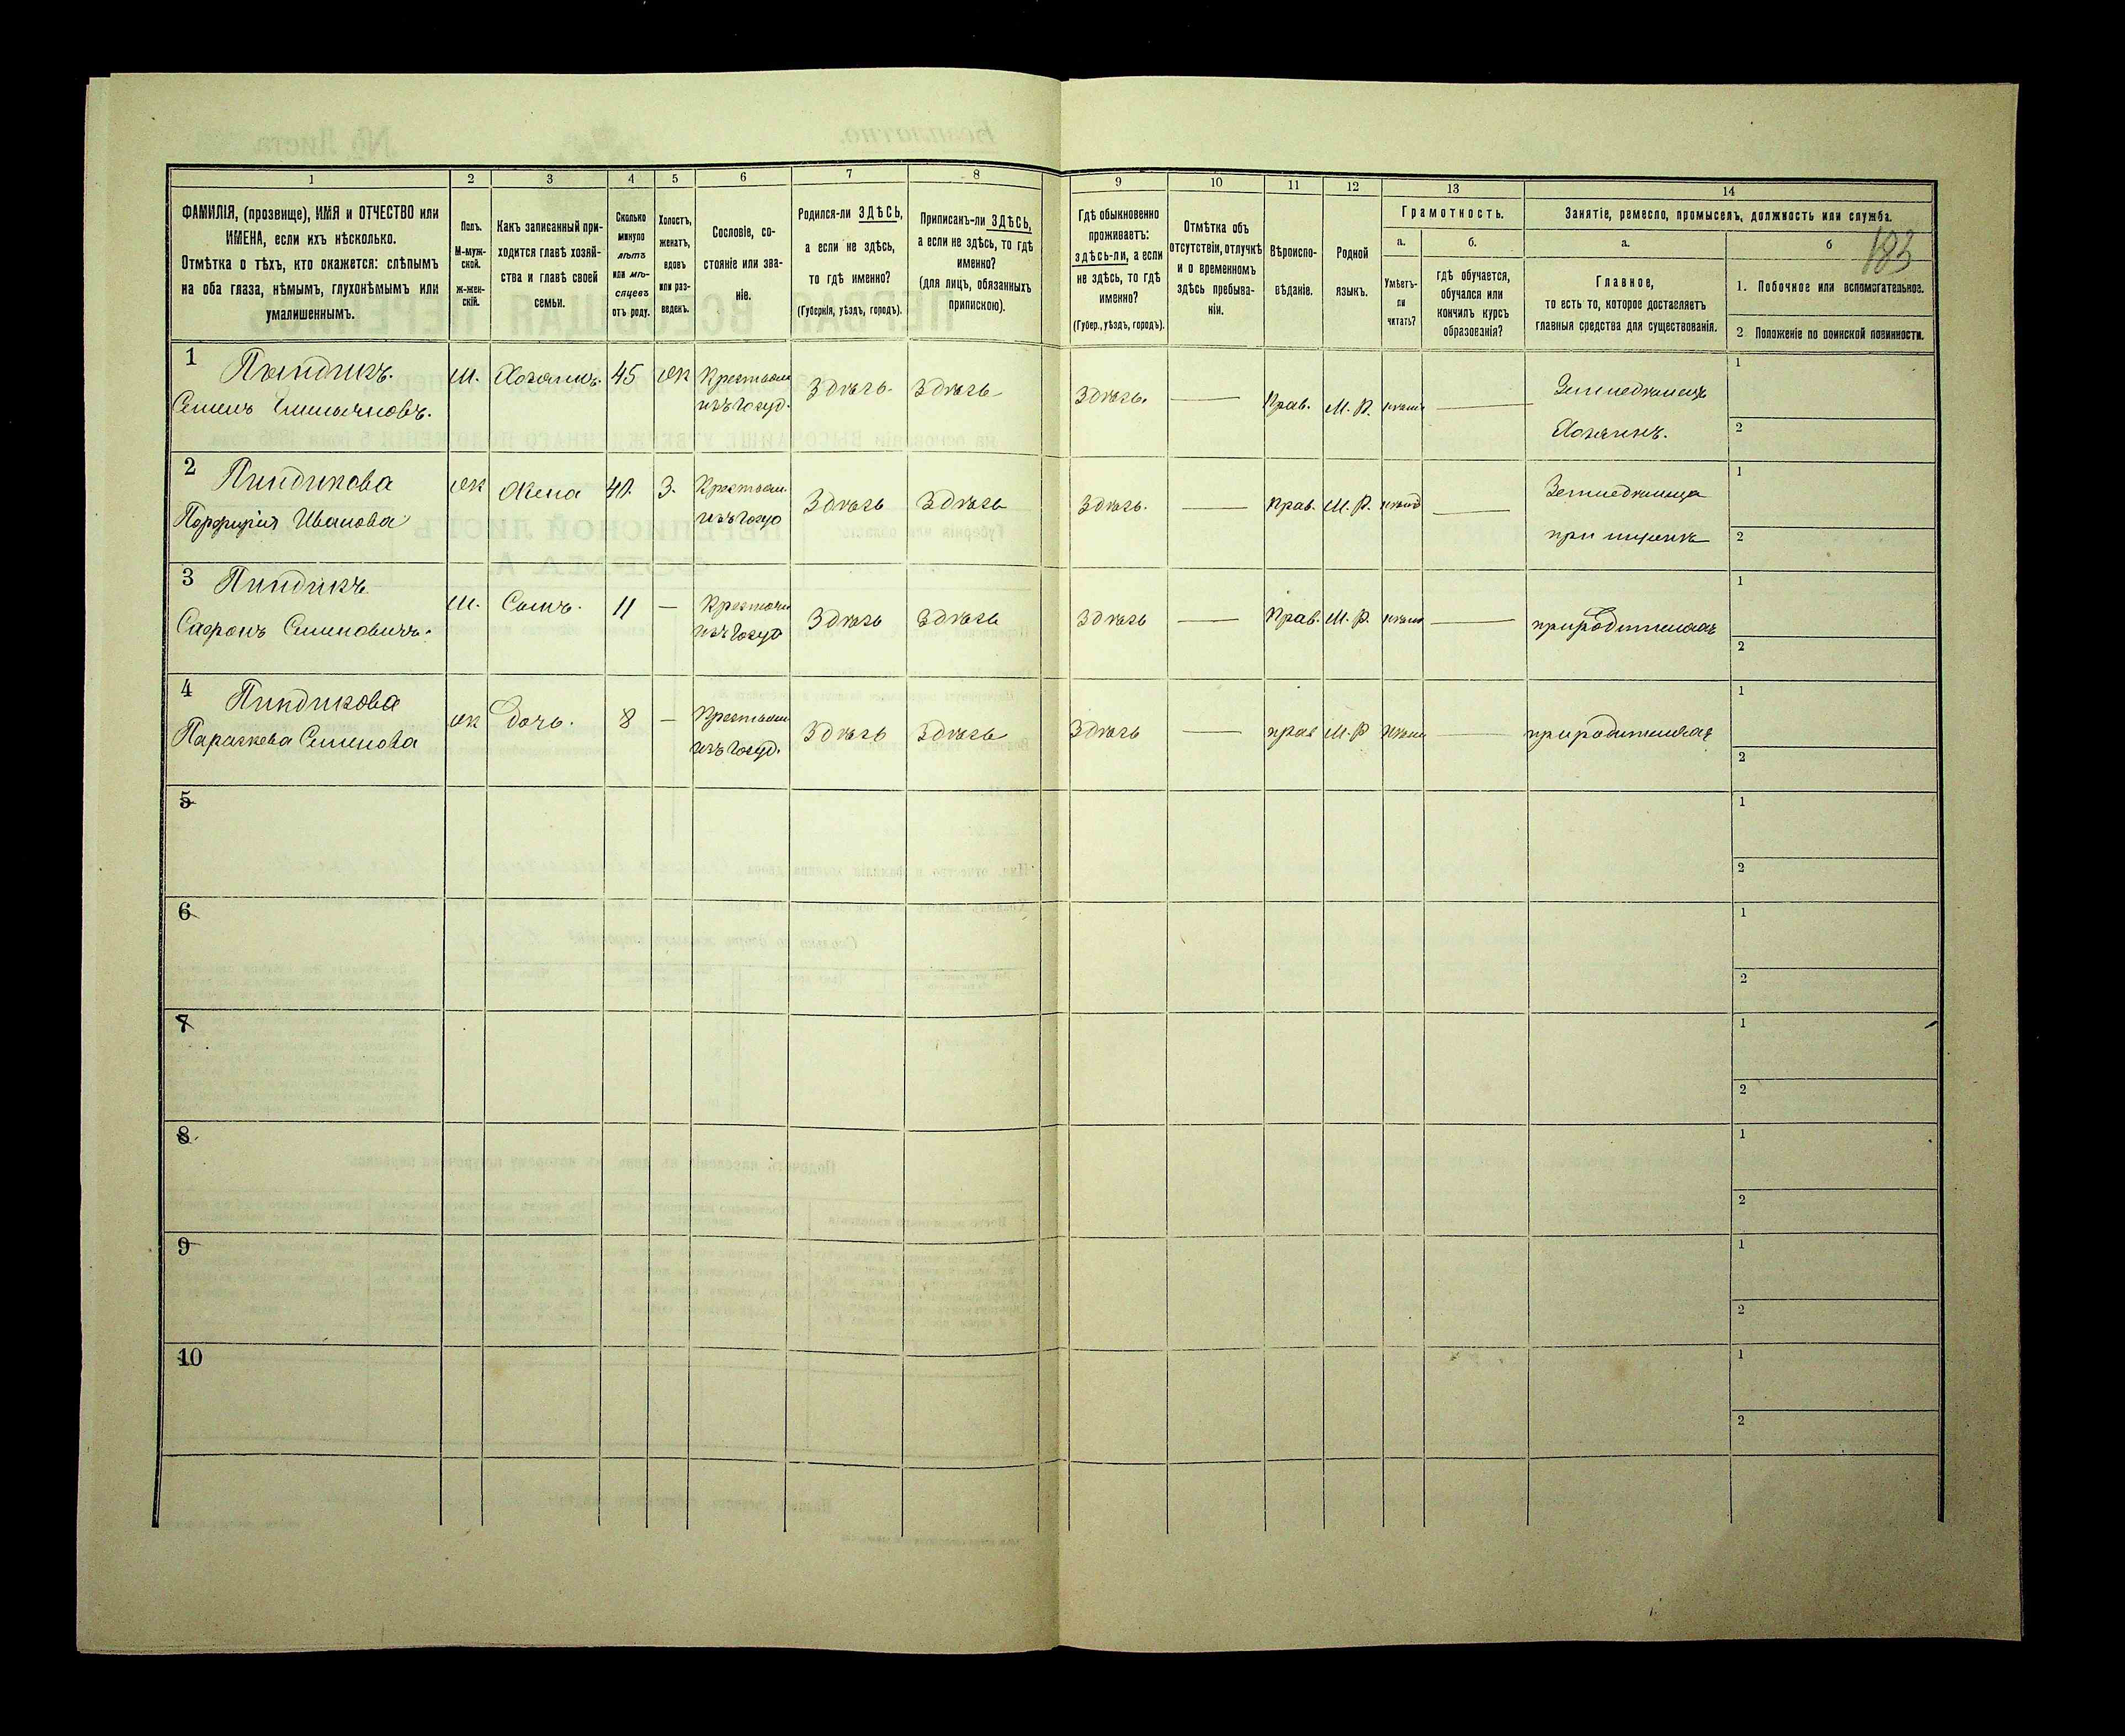 1 2 3 4 5 6 7 8 9 10 11 12 13 14
ФАМИЛІЯ, (прозвище), ИМЯ и ОТЧЕСТВО или
ИМЕНА, если ихъ нѣсколько.
Отмѣтка о тѣхъ, кто окажется: слѣпымъ
на оба глаза, нѣмымъ, глухонѣмымъ или
умалишеннымъ.
Полъ.
М-муж-
ской.
ж-жен-
скій.
Какъ записанный при-
ходится главѣ хозяй-
ства и главѣ своей
семьи.
Сколько
минуло
лѣтъ
или мѣ-
сяцевъ
отъ роду.
Холостъ,
женатъ,
вдовъ
или раз-
веденъ.
Сословіе, со-
стояніе или зва-
ніе.
Родился-ли ЗДѢСЬ,
а если не здѣсь,
то гдѣ именно?
(Губернія, уѣздъ, городъ).
Приписанъ-ли ЗДѢСЬ,
а если не здѣсь, то гдѣ
именно?
(для лицъ, обязанныхъ
припискою).
Гдѣ обыкновенно
проживаетъ:
здѣсь-ли, а если
не здѣсь, то гдѣ
именно?
(Губер., уѣздъ, городъ).
Отмѣтка объ
отсутствіи, отлучкѣ
и о временномъ
здѣсь пребыва-
ніи.
Вѣроиспо-
вѣданіе.
Родной
языкъ.
Грамотность.
а.
Умѣетъ-
ли
читать?
б.
гдѣ обучается,
обучался или
кончилъ курсъ
образованія?
Занятіе, ремесло, промыселъ, должность или служба.
а.
Главное,
то есть то, которое доставляетъ
главныя средства для существованія.
б
183
1. Побочное или вспомогательное.
2 Положеніе по воинской повинности.
1 Пиндикъ. М. Хозяинъ. 45 Ж Крестьян Здѣсь. Здѣсь Здѣсь. — Прав. М. Р. — Земледѣлецъ 1
Семенъ изъ госуд. Хозяинъ. 2
2 Пиндикова Ж Жена 40. З. Крестьян. Здѣсь Здѣсь Здѣсь. — Прав. М. Р. — Земледѣлица 1
Порфирія Иванова изъ госуд при мужѣ 2
3 Пиндикъ М. Сынъ. 11 — Крестьян Здѣсь Здѣсь Здѣсь — Прав. М. Р. — при родителяхъ 1
Сафронъ Семеновичъ. изъ госуд 2
4 Пиндикова Ж Дочь. 8 — Крестьян Здѣсь Здѣсь Здѣсь — прав М. Р — при родителяхъ 1
Параскева Семенова изъ госуд. 2
5 1
2
6 1
2
7 1
2
8 1
2
9 1
2
10 1
2